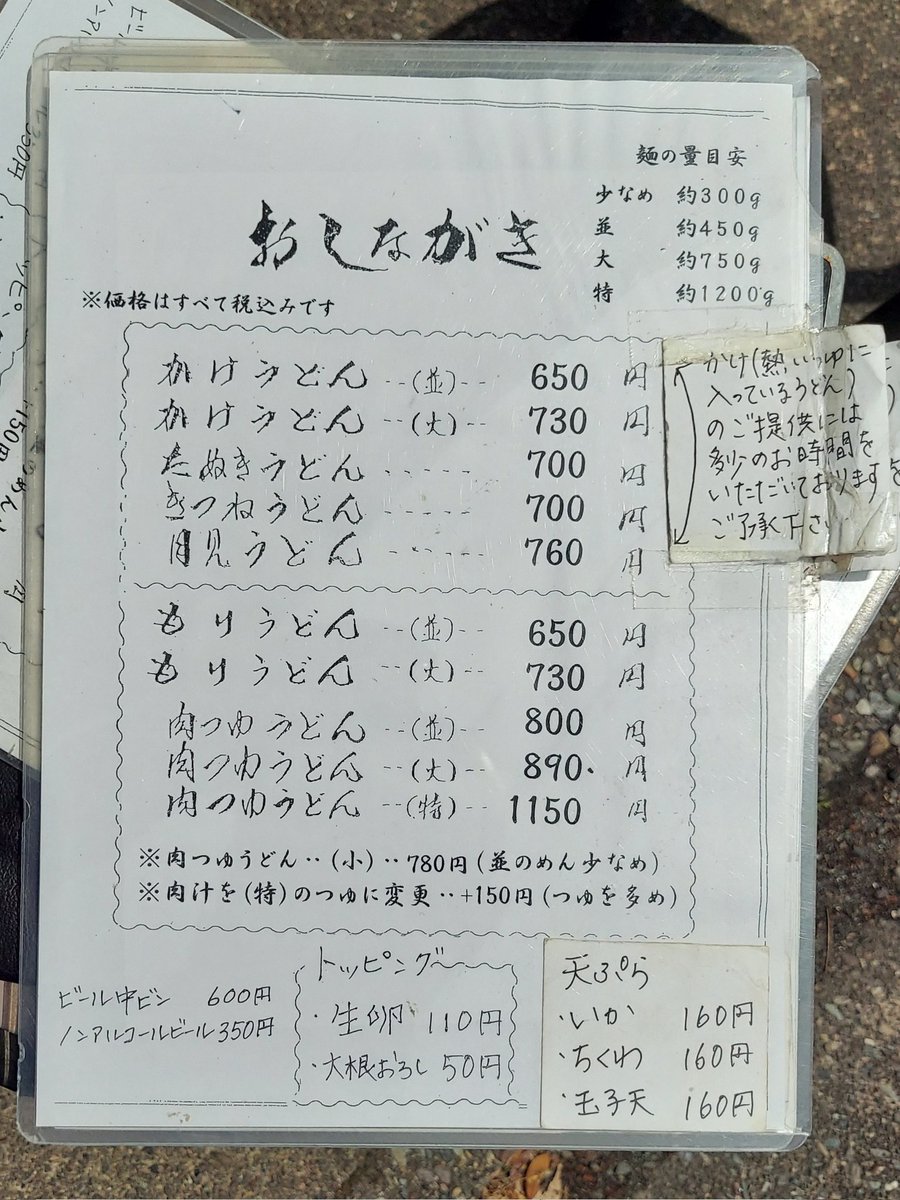 おしながき
麺の量目安
少なめ 約300g
並 約450g
大 約750g
特 約1200g
※価格はすべて税込みです
かけうどん --(並)-- 650 円
かけうどん --(大)-- 730 円
たぬきうどん ----- 700 円
きつねうどん ----- 700 円
月見うどん ----- 760 円
かけ(熱いつゆに
入っているうどん)
のご提供には
多少のお時間を
いただいております
ご了承下さい
もりうどん --(並)-- 650 円
もりうどん --(大)-- 730 円
肉つゆうどん --(並)-- 800 円
肉つゆうどん --(大)-- 890 円
肉つゆうどん --(特)-- 1150 円
※肉つゆうどん‥(小)‥780円(並のめん少なめ)
※肉汁を(特)のつゆに変更‥+150円(つゆを多め)
ビール中ビン 600円
ノンアルコールビール 350円
トッピング
・生卵 110円
・大根おろし 50円
天ぷら
・いか 160円
・ちくわ 160円
・玉子天 160円